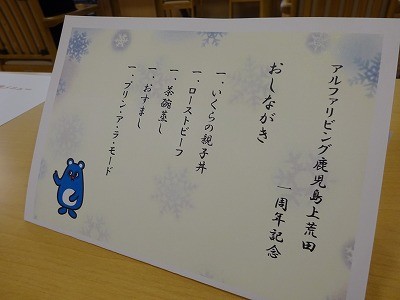 アルファリビング鹿児島上荒田
一周年記念
おしながき
一．いくらの親子丼
一．ローストビーフ
一．茶碗蒸し
一．おすまし
一．プリン・ア・ラ・モード